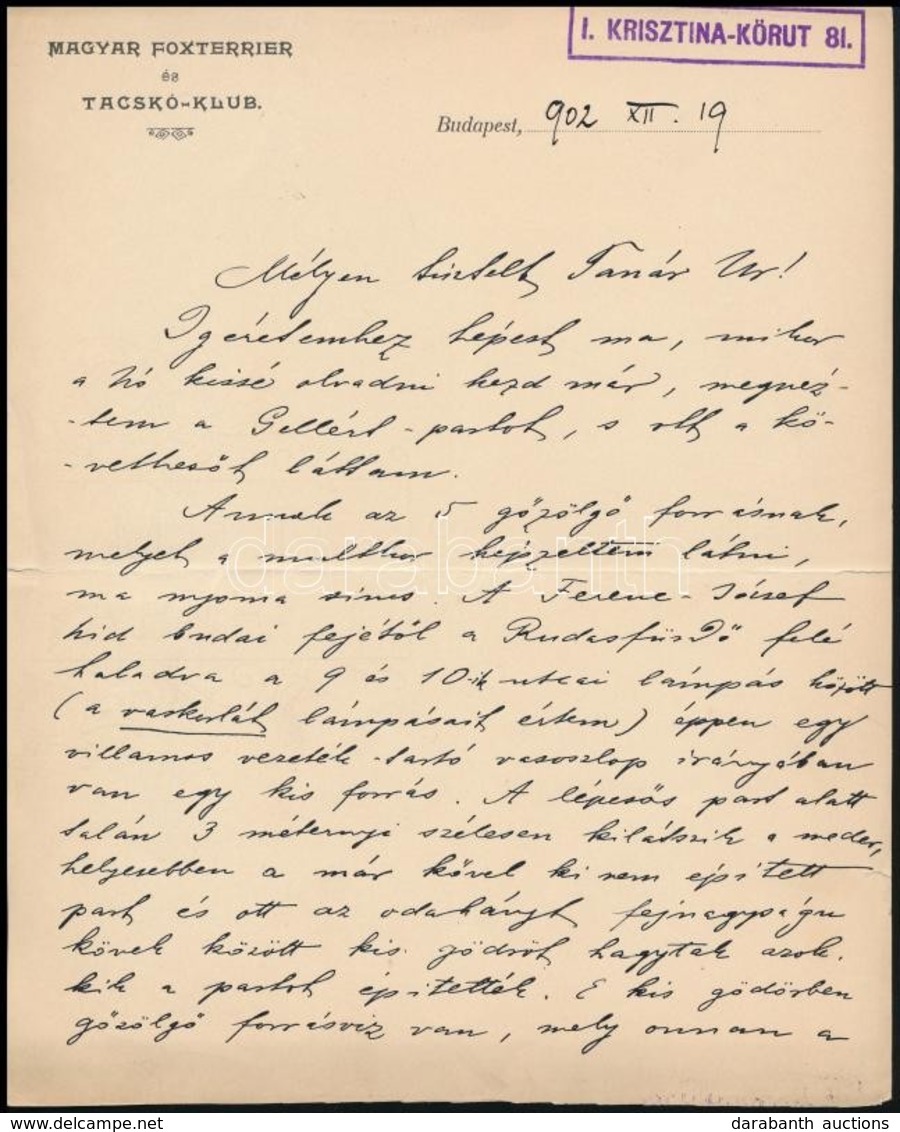 I. KRISZTINA-KÖRUT 81.
MAGYAR FOXTERRIER
és
TACSKÓ-KLUB.
Budapest, 902 XII. 19
Mélyen tisztelt Tanár Ur!
Igéretemhez képest ma, mikor
a hó kissé olvadni kezd már, megnéz-
-tem a Gellért-partot, s ott a kö-
-vetkezőt láttam.
Annak az 5 gőzölgő forrásnak,
melyet a multkor képzeltem látni,
ma nyoma sincs. A Ferenc-József
hid budai fejétől a Rudasfürdő felé
haladva a 9 és 10-ik utcai lámpás között
(a vaskorlát lámpásait értem) éppen egy
villamos vezeték-tartó vasoszlop irányában
van egy kis forrás. A lépcsős part alatt
talán 3 méternyi szélesen kilátszik a meder,
helyesebben a már kővel ki nem épitett
part és ott az odahányt fejnagyságu
kövek között kis gödröt hagytak azok,
kik a partot épitették. E kis gödörben
gőzölgő forrásviz van, mely onnan a
darabanth
darabanth auctions